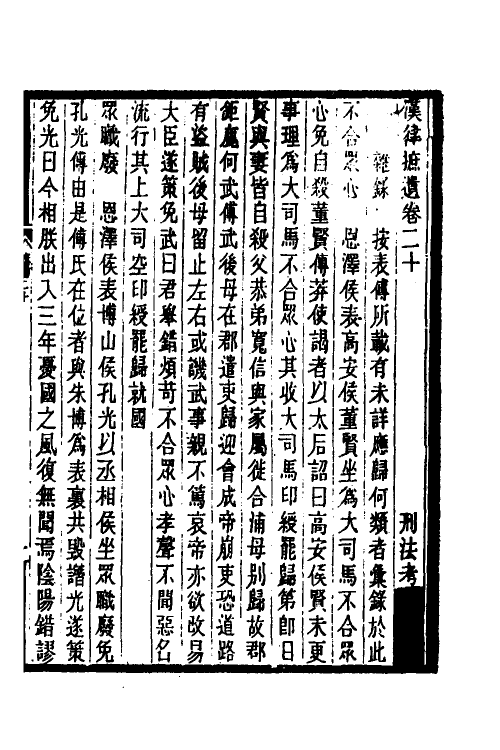 漢律摭遺卷二十　刑法考
雜錄　按表傳所載有未詳應歸何類者彙錄於此
不合眾心　恩澤侯表高安侯董賢坐為大司馬不合眾
心免自殺董賢傳莽使謁者以太后詔曰高安侯賢未更
事理為大司馬不合眾心其收大司馬印綬罷歸第即日
賢與妻皆自殺父恭弟寬信與家屬徙合浦母別歸故郡
鉅鹿何武傳武後母在郡遣吏歸迎會成帝崩吏恐道路
有盜賊後母留止左右或譏武事親不篤哀帝亦欲改易
大臣遂策免武曰君舉錯煩苛不合眾心孝聲不聞惡名
流行其上大司空印綬罷歸就國
眾職廢　恩澤侯表博山侯孔光以丞相侯坐眾職廢免
孔光傳由是傅氏在位者與朱博為表裏共毀譖光遂策
免光曰今相朕出入三年憂國之風復無聞焉陰陽錯謬